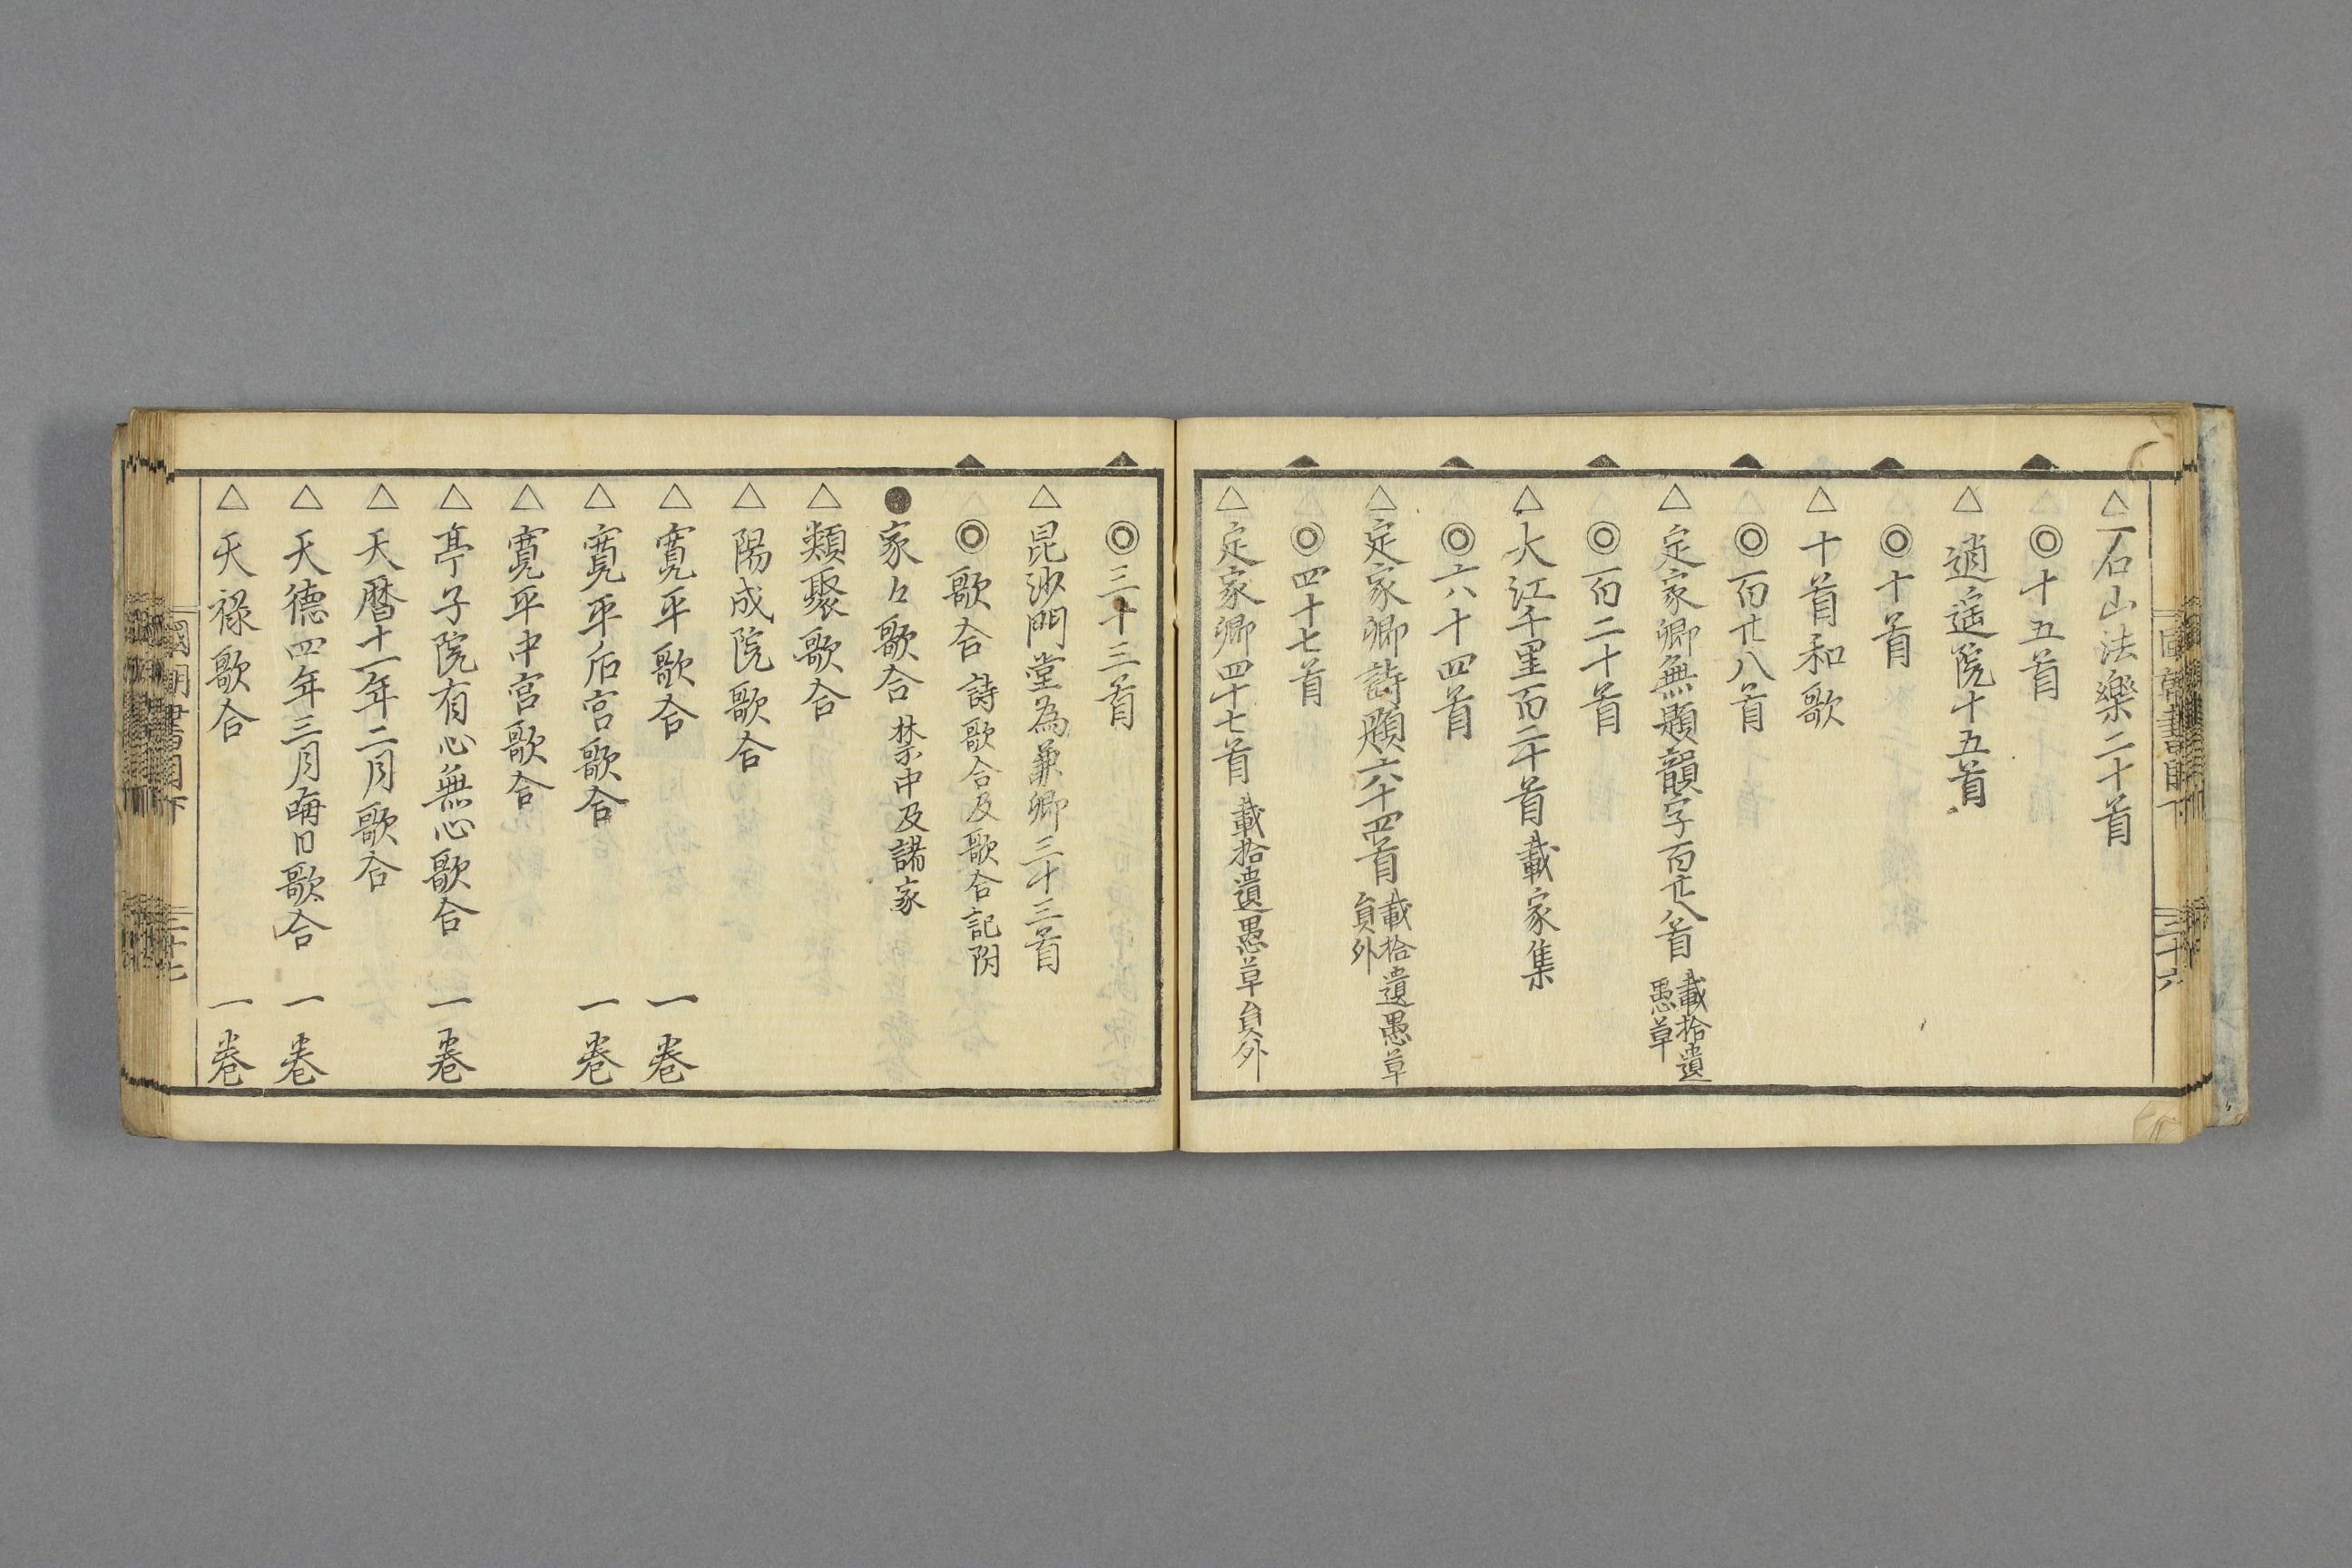 △石山法樂二十首
◎十五首
△逍遥院十五首
◎十首
△十首和歌
◎百廿八首
△定家卿無題韻字百廿八首 載拾遺
愚草
◎百二十首
△大江千里百二十首 載家集
◎六十四首
△定家卿詩題六十四首 載拾遺愚草
員外
◎四十七首
△定家卿四十七首 載拾遺愚草員外
三十六
◎三十三首
△昆沙門堂為兼卿三十三首
◎歌合 詩歌合及歌合記附
●家々歌合 禁中及諸家
△類聚歌合
△陽成院歌合
△寛平歌合 一巻
△寛平后宮歌合 一巻
△寛平中宮歌合
△亭子院有心無心歌合 一巻
△天暦十一年二月歌合
△天德四年三月晦日歌合 一巻
△天禄歌合 一巻